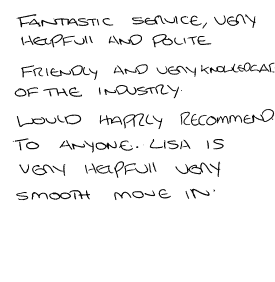 FANTASTIC SERVICE, VERY
HELPFULL AND POLITE
FRIENDLY AND VERY KNOWLEDGAB
OF THE INDUSTRY.
WOULD HAPPILY RECOMMEND
TO ANYONE. LISA IS
VERY HELPFULL VERY
SMOOTH MOVE IN.